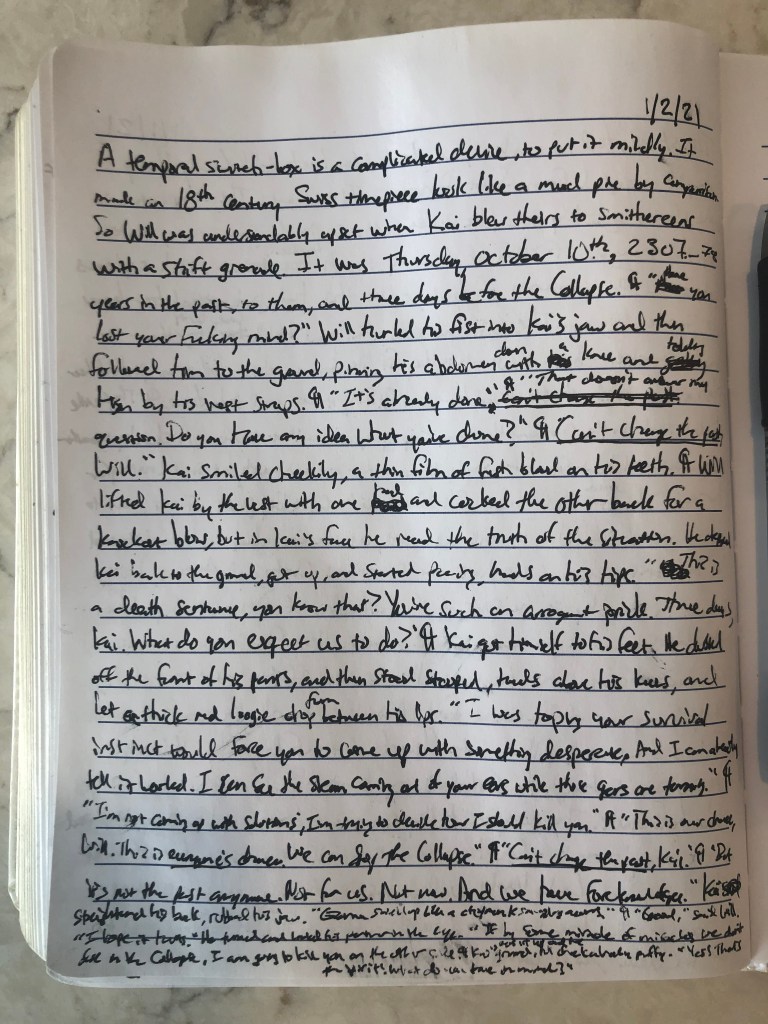 1/2/21
A temporal switch-box is a complicated device, to put it mildly. It
made an 18th century Swiss timepiece look like a mud pie by comparison
So Will was understandably upset when Kai blew theirs to smithereens
with a shift grenade. It was Thursday, October 10th, 2307 — 78
years in the past, to them, and three days before the Collapse. ¶ "Have you
lost your fucking mind?" Will hurled his fist into Kai's jaw and then
followed him to the ground, pinning his abdomen down with a knee and
him by his vest straps. ¶ "It's already done." ¶ "That doesn't answer my
question. Do you have any idea what you've done?" ¶ "Can't change the past
Will." Kai smiled cheekily, a thin film of fresh blood on his teeth. ¶ Will
lifted Kai by the vest with one hand and cocked the other back for a
knockout blow, but in Kai's face he read the truth of the situation. He dropped
Kai back to the ground, got up, and started pacing, hands on his hips. "This is
a death sentence, you know that? You're such an arrogant prick. Three days,
Kai. What do you expect us to do?" ¶ Kai got himself to his feet. He dusted
off the front of his pants, and then stood stooped, hands above his knees, and
let a thick red loogie drop from between his lips. "I was hoping your survival
instinct would force you to come up with something desperate, And I can already
tell it worked. I can see the steam coming out of your ears while those gears are turning." ¶
"I'm not coming up with solutions, I'm trying to decide how I should kill you." ¶ "This is our chance,
Will. This is everyone's chance. We can stop the Collapse." ¶ "Can't change the past, Kai." ¶ "But
it's not the past anymore. Not for us. Not now. And we have foreknowledge." Kai
straightened his back, rubbed his jaw. "Gonna swell up like a chipmunk" ¶ "Good," said Will.
"I hope it hurts." He turned and looked his partner in the eye. "If by some miracle of miracles we don't
die in the Collapse, I am going to kill you on the other side." ¶ Kai grinned, his cheek already puffy. "Yes! That's
the spirit. What do you have in mind?"